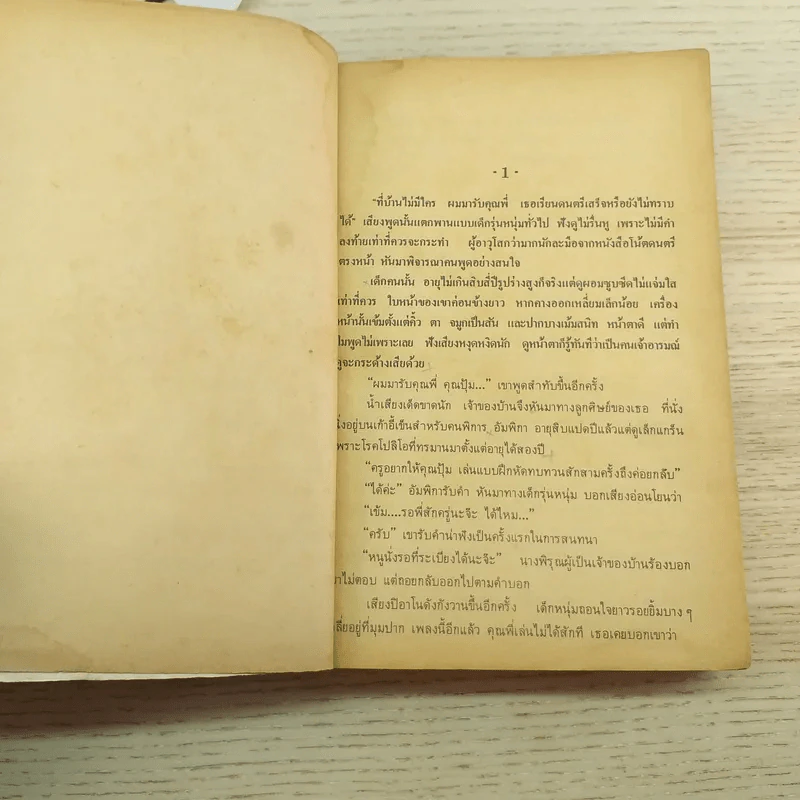 - 1 -
"ที่บ้านไม่มีใคร ผมมารับคุณพี่ เธอเรียนดนตรีเสร็จหรือยังไม่ทราบ
ได้" เสียงพูดนั้นแตกพานแบบเด็กรุ่นหนุ่มทั่วไป ฟังดูไม่รื่นหู เพราะไม่มีคำ
ลงท้ายเท่าที่ควรจะกระทำ ผู้อาวุโสกว่ามากนักละมือจากหนังสือโน้ตดนตรี
ตรงหน้า หันมาพิจารณาคนพูดอย่างสนใจ
เด็กคนนั้น อายุไม่เกินสิบสี่ปีรูปร่างสูงก็จริงแต่ดูผอมซูบซีดไม่แจ่มใส
เท่าที่ควร ใบหน้าของเขาค่อนข้างยาว หากคางออกเหลี่ยมเล็กน้อย เครื่อง
หน้านั้นเข้มตั้งแต่คิ้ว ตา จมูกเป็นสัน และปากบางเม้มสนิท หน้าตาดี แต่ทำ
ไมพูดไม่เพราะเลย ฟังเสียงหงุดหงิดนัก ดูหน้าตาก็รู้ทันทีว่าเป็นคนเจ้าอารมณ์
ดูจะกระด้างเสียด้วย
"ผมมารับคุณพี่ คุณปุ้ม..." เขาพูดสำทับขึ้นอีกครั้ง
น้ำเสียงเด็ดขาดนัก เจ้าของบ้านจึงหันมาทางลูกศิษย์ของเธอ ที่นั่ง
นิ่งอยู่บนเก้าอี้เข็นสำหรับคนพิการ อัมพิกา อายุสิบแปดปีแล้วแต่ดูเล็กแกร็น
เพราะโรคโปลิโอที่ทรมานมาตั้งแต่อายุได้สองปี
"ครูอยากให้คุณปุ้ม เล่นแบบฝึกหัดทบทวนสักสามครั้งถึงค่อยกลับ"
"ได้ค่ะ" อัมพิการับคำ หันมาทางเด็กรุ่นหนุ่ม บอกเสียงอ่อนโยนว่า
"เข้ม....รอพี่สักครู่นะจ๊ะ ได้ไหม..."
"ครับ" เขารับคำน่าฟังเป็นครั้งแรกในการสนทนา
"หนูนั่งรอที่ระเบียงได้นะจ๊ะ" นางพิรุณผู้เป็นเจ้าของบ้านร้องบอก
เขาไม่ตอบ แต่ถอยกลับออกไปตามคำบอก
เสียงปิอาโนดังกังวานขึ้นอีกครั้ง เด็กหนุ่มถอนใจยาวรอยยิ้มบาง ๆ
คลี่อยู่ที่มุมปาก เพลงนี้อีกแล้ว คุณพี่เล่นไม่ได้สักที เธอเคยบอกเขาว่า